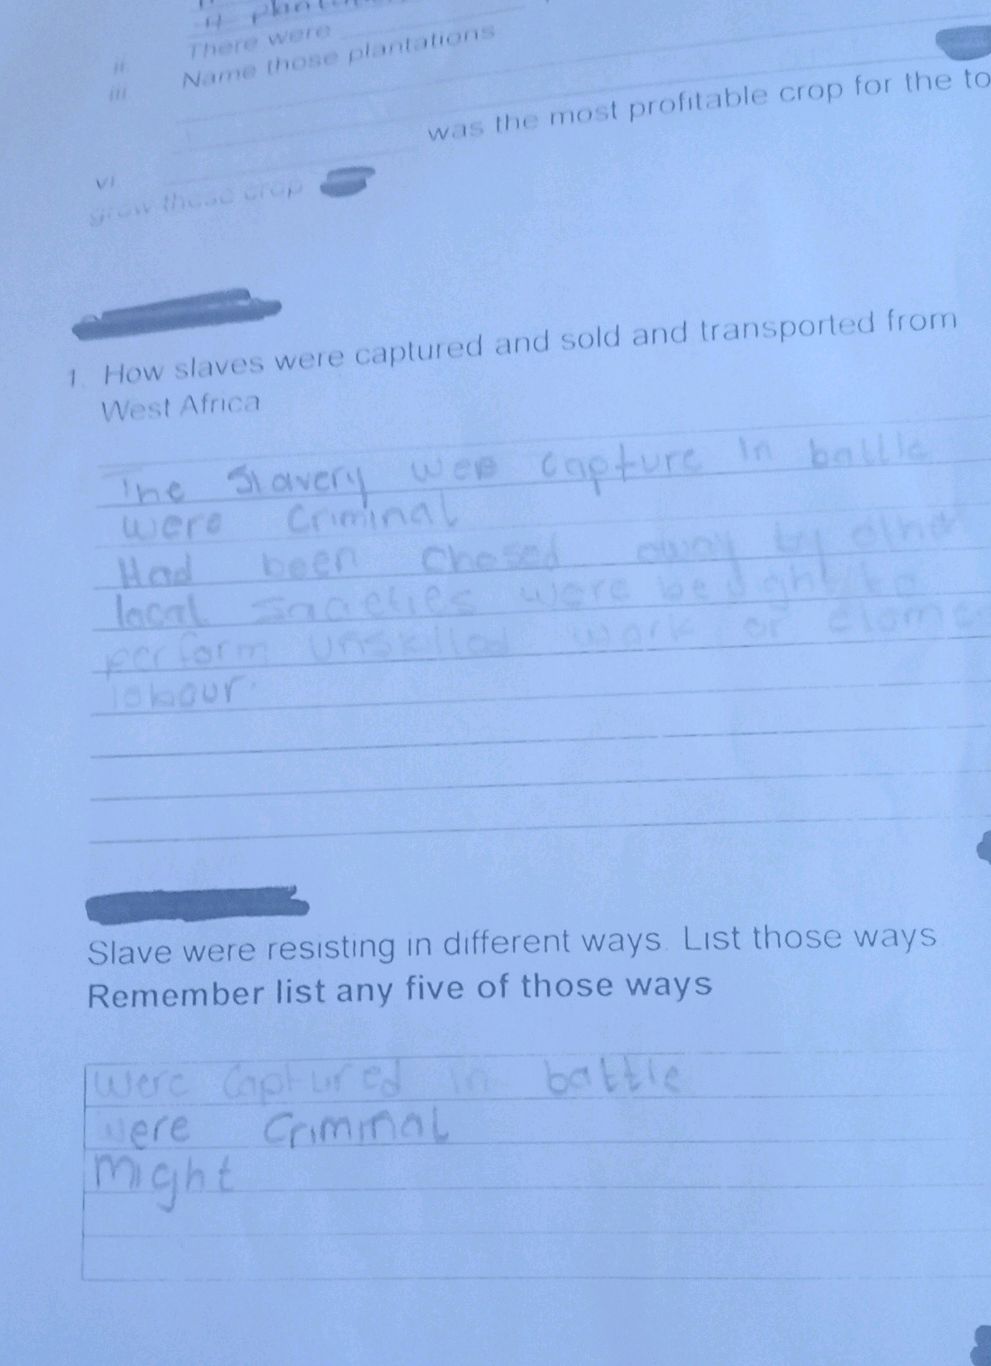 4 plan
ii There were
iii Name those plantations
was the most profitable crop for the to
vi
grow these crop
1. How slaves were captured and sold and transported from
West Africa
The Slavery were capture in battle
were criminal
Had been chosed away by other
local were to
perform unskilled work or
labour.
Slave were resisting in different ways. List those ways
Remember list any five of those ways
were captured in battle
were criminal
might